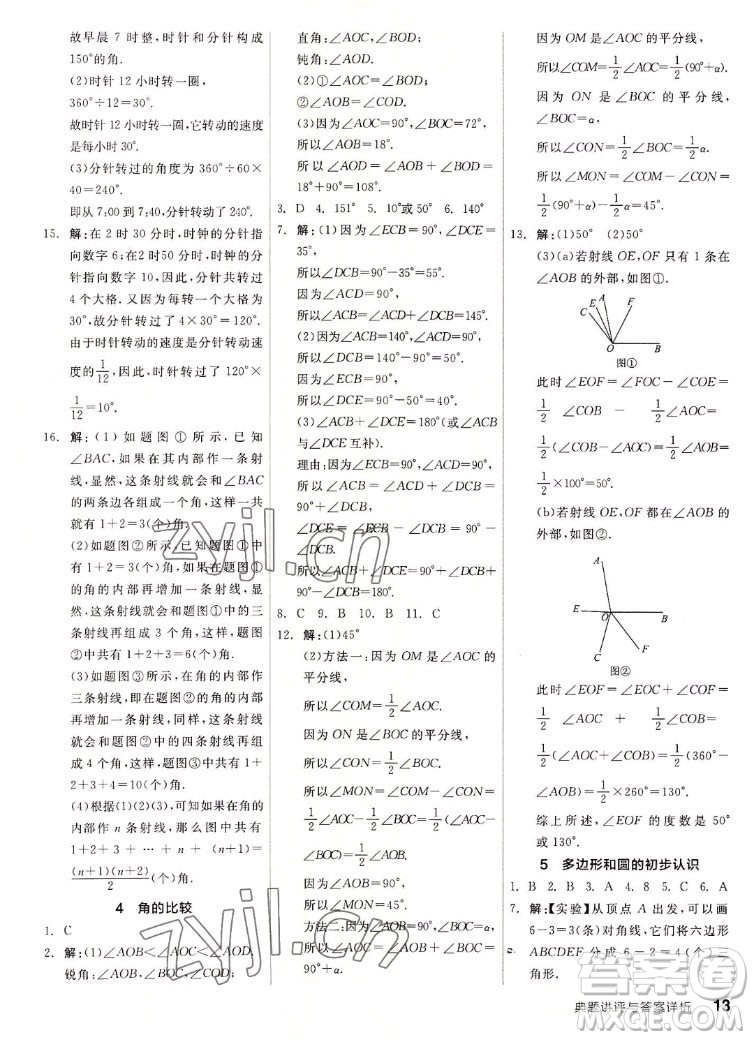 故早晨 7 时整，时针和分针构成
150°的角.
(2)时针 12 小时转一圈，
360°÷12=30°.
故时针 12 小时转一圈，它转动的速度
是每小时 30°.
(3)分针转过的角度为 360°÷60×
40=240°.
即从 7:00 到 7:40，分针转动了 240°.
15. 解：在 2 时 30 分时，时钟的分针指
向数字 6；在 2 时 50 分时，时钟的分
针指向数字 10，因此，分针共转过
4 个大格. 又因为每一大格对应 30°，
故分针转过了 4×30°=120°.
由于时针转动速度是分针转动速
度的1/12，故时针转过了 120°×
1/12=10°.
16. 解：(1)如题图①所示，已知
∠BAC，如果在其内部作一条射
线，显然这条射线就会和∠BAC
的两条边各组成一个角，这样一共
就有 1+2=3(个)角.
(2)如题图②所示，题图①中
有 1+2=3(个)角，如果在题图①
的角的内部再增加一条射线，即题图②，
这条射线就会和题图①中的三
条射线再组成 3 个角，即题图②中
共有 1+2+3=6(个)角.
(3)如题图③，在角的内部作
三条射线，即在题图②的角的内部
再增加一条射线，同样，这条射线
就会和题图②中的四条射线再组
成 4 个角，即题图③中共有 1+
2+3+4=10(个)角.
(4)根据(1)(2)(3)可知，在角的
内部作 n 条射线，那么图中共有
1 + 2 + 3 + ⋯ + n + (n+1) =
(n+1)(n+2)/2(个)角.
4 角的比较
1. C
2. 解：(1)∠AOB<∠AOC<∠AOD.
锐角：∠AOB，∠BOC，∠COD；
直角：∠AOC，∠BOD；
钝角：∠AOD.
(2)①∠AOC=∠BOD；
②∠AOB=∠COD.
(3)因为∠AOC=90°，∠BOC=72°，
所以∠AOB=18°.
所以∠AOD=∠AOB+∠BOD=
18°+90°=108°.
3. D 4. 151° 5. 10°或50° 6. 140°
7. 解：(1)因为∠ECB=90°，
∠DCE=35°，
所以∠DCB=90°-35°=55°.
因为∠ACD=90°，
所以∠ACB=∠ACD+∠DCB=145°.
(2)因为∠ACB=140°，∠ACD=90°，
所以∠DCB=140°-90°=50°.
因为∠ECB=90°，
所以∠DCE=90°-50°=40°.
(3)∠ACB+∠DCE=180°(或∠ACB
与∠DCE 互补).
理由：因为∠ECB=90°，∠ACD=90°，
所以∠ACB=∠ACD+∠DCB=
90°+∠DCB，
∠DCE=∠ECB-∠DCB=90°-
∠DCB.
所以∠ACB+∠DCE=90°+∠DCB+
90°-∠DCB=180°.
8. C 9. B 10. B 11. C
12. 解：(1)45°
(2)方法一：因为 OM 是∠AOC 的
平分线，
所以∠COM=1/2∠AOC.
因为 ON 是∠BOC 的平分线，
所以∠CON=1/2∠BOC.
所以∠MON=∠COM-∠CON=
1/2∠AOC-1/2∠BOC=1/2(∠AOC-
∠BOC)=1/2∠AOB=1/2×90°=45°.
方法二：因为∠AOB=90°，∠BOC=α，
所以∠AOC=∠AOB+∠BOC=
90°+α.
因为 OM 是∠AOC 的平分线，
所以∠COM=1/2∠AOC=1/2(90°+α).
因为 ON 是∠BOC 的平分线，
∠BOC=α，
所以∠CON=1/2∠BOC=1/2α.
所以∠MON=∠COM-∠CON=1/2
(90°+α)-1/2α=45°.
13. 解：(1)50° (2)50°
(3)(a)若射线 OE，OF 只有 1 条在
∠AOB 的外部，如图①.
A
E
C
F
O
B
图①
此时∠EOF=∠FOC-∠COE=
1/2∠COB - 1/2∠AOC =
1/2(∠COB-∠AOC)=1/2∠AOB=
1/2×100°=50°.
(b)若射线 OE，OF 都在∠AOB 的
外部，如图②.
A
E
O
B
C
F
图②
此时∠EOF=∠EOC+∠COF=
1/2∠AOC + 1/2∠COB =
1/2(∠AOC+∠COB)=1/2(360°-
∠AOB)=1/2×260°=130°.
综上所述，∠EOF 的度数为 50°
或 130°.
5 多边形和圆的初步认识
1. B 2. B 3. A 4. 8 5. C 6. A
7. 解：【实验】从顶点 A 出发，可以画
6-3=3(条)对角线，它们将六边形
ABCDEF 分成 6-2=4(个)三
角形.
典题讲评与答案详析 13
zyjl.cn
zyjl.cn
答案圈